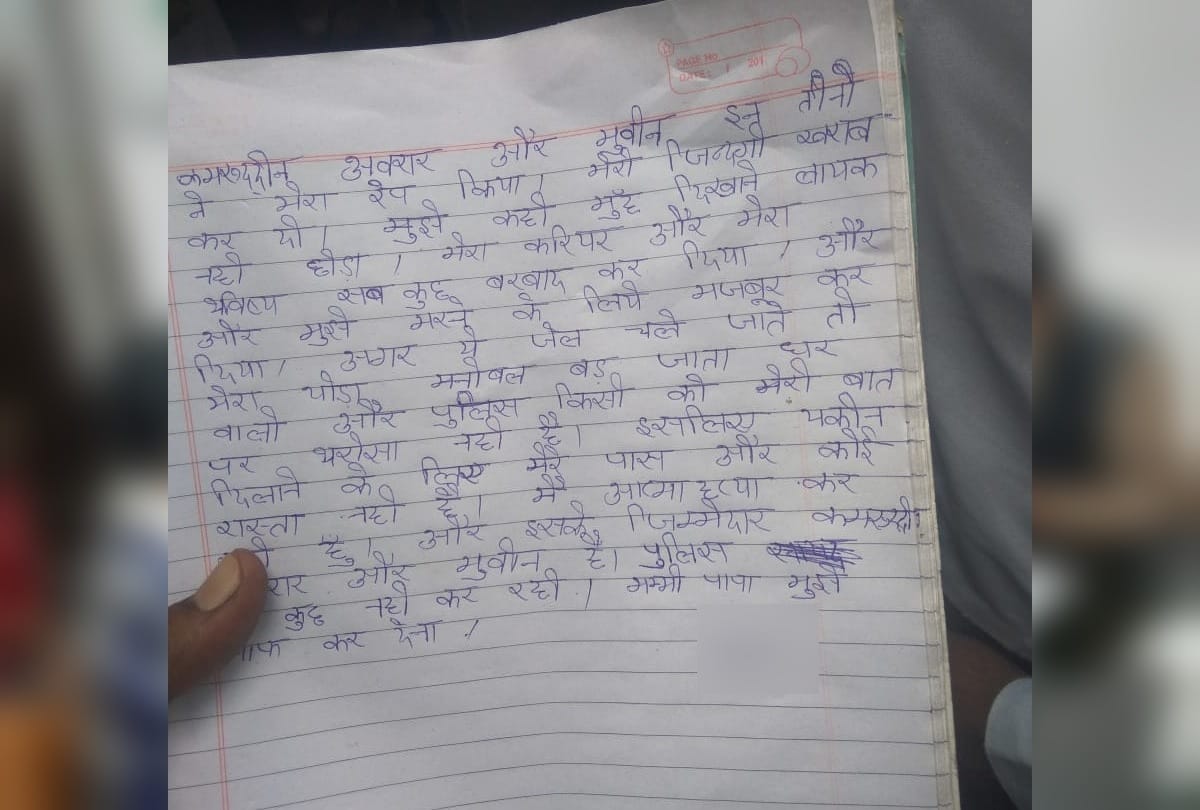 PAGE NO.
DATE: / / 201
कमरूद्दीन अबरार और मुवीन इन तीनों
ने मेरा रेप किया। मेरी जिन्दगी खराब
कर दी। मुझे कही मुँह दिखाने लायक
नही छोडा। मेरा करियर और मेरा
भविष्य सब कुछ बरबाद कर दिया। और
और मुझे मरने के लिये मजबूर कर
दिया। अगर ये जेल चले जाते तो
मेरा थोडा मनोबल बड़ जाता घर
वालो और पुलिस किसी को मेरी बात
पर भरोसा नही है। इसलिए यकीन
दिलाने के लिए मेरे पास और कोई
रास्ता नही है। मै आत्माहत्या कर
हूँ। और इसके जिम्मेदार
और मुवीन है। पुलिस
कुछ नही कर रही। मम्मी पापा मुझे
कर देना।